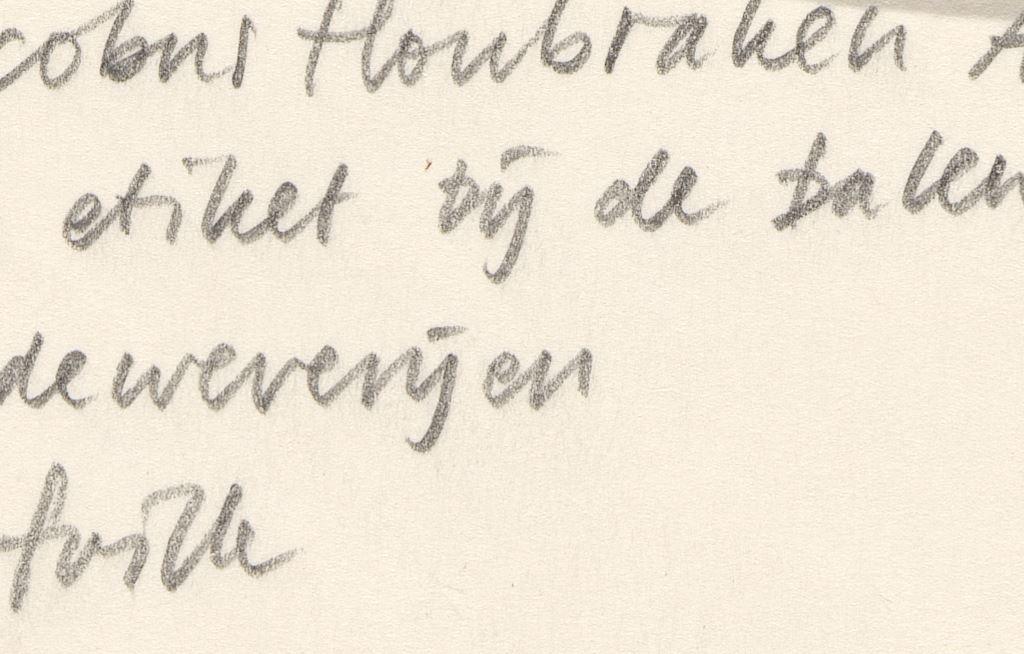 cobus Houbraken A
etiket bij de balen
deweverijen